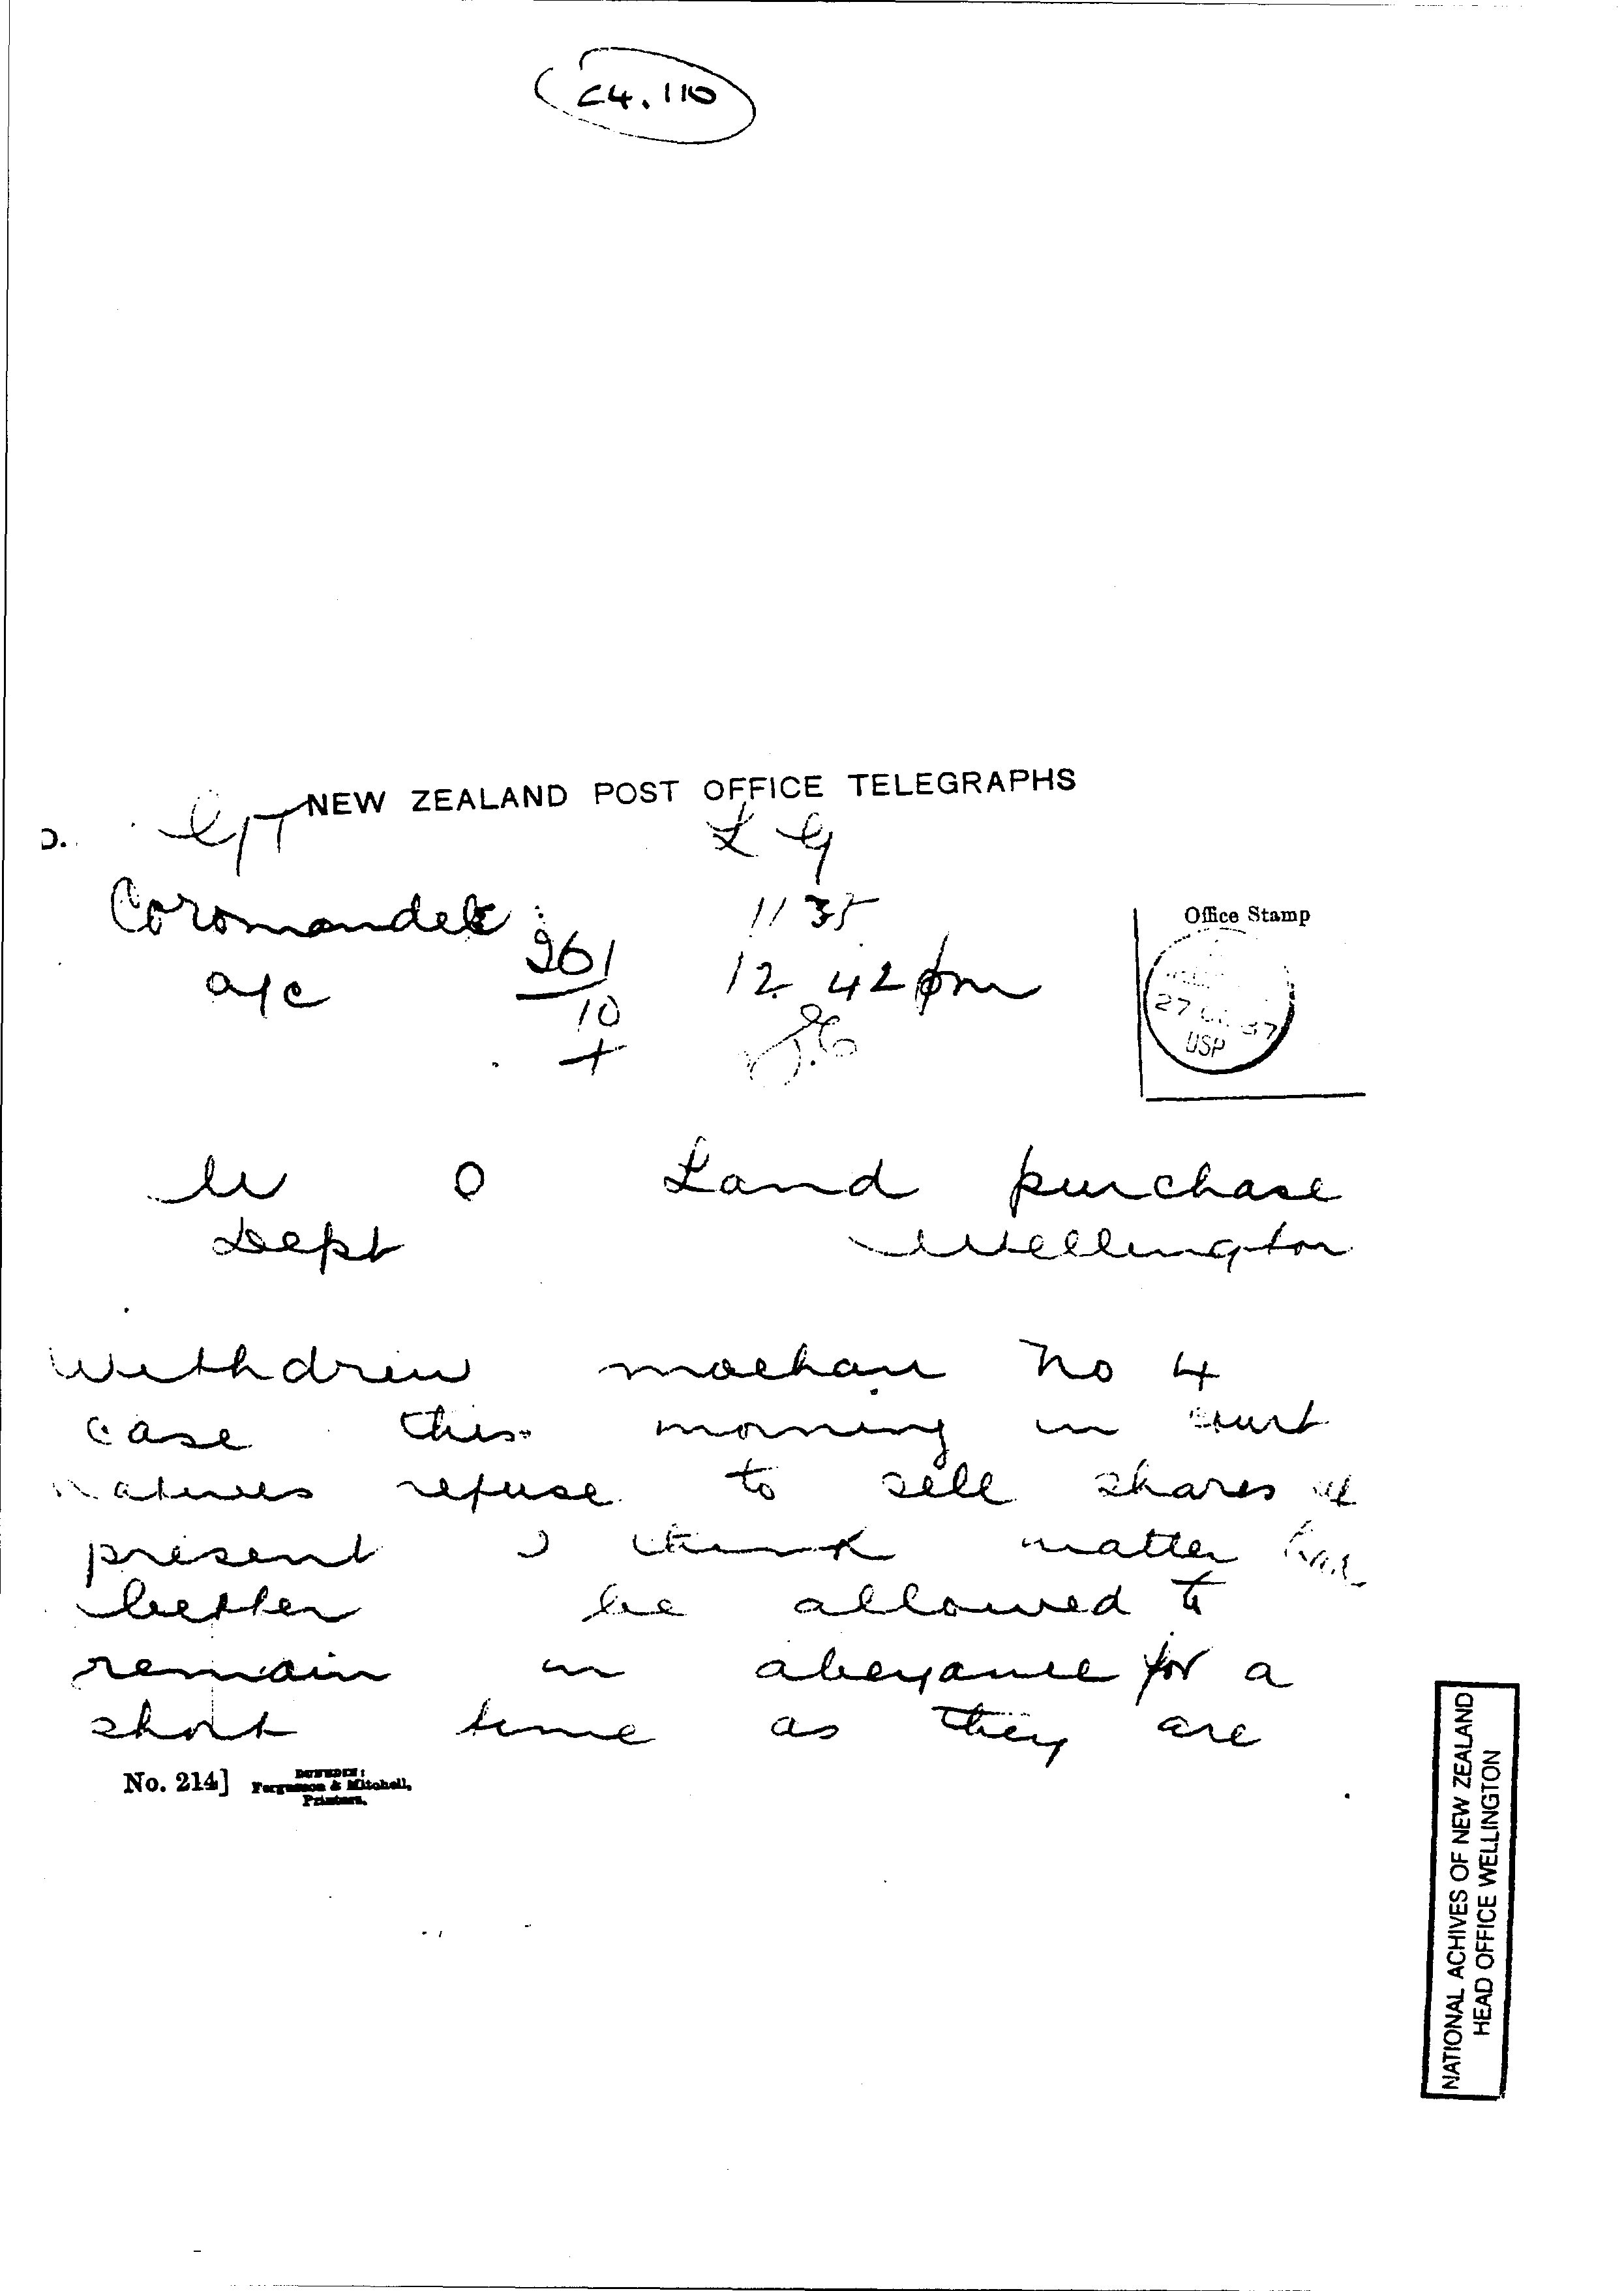 C4.110
NEW ZEALAND POST OFFICE TELEGRAPHS
D.
L G
Coromandel
11 35
Office Stamp
a/c
261
10
+
12 42 pm
27
USP
U O Land purchase
Dept Wellington
Withdrew moehau No 4
case this morning in court
natives refuse to sell shares at
present I think matter had
better be allowed to
remain in abeyance for a
short time as they are
No. 214]
DUNEDIN:
Fergusson & Mitchell,
Printers.
NATIONAL ACHIVES OF NEW ZEALAND
HEAD OFFICE WELLINGTON